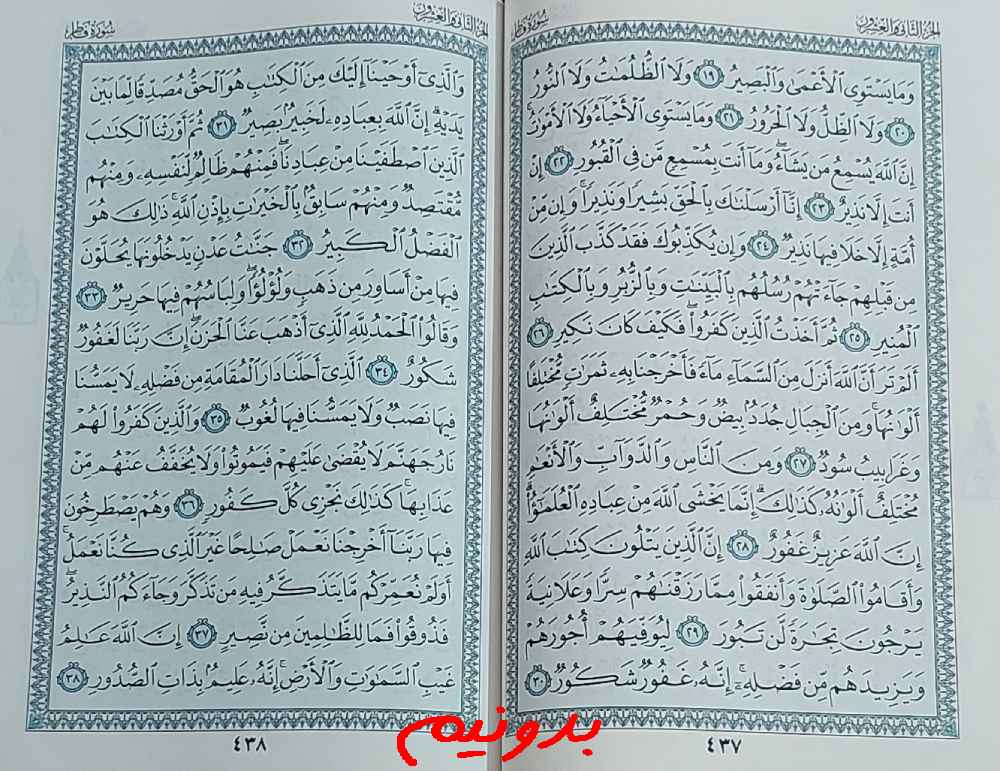 الجزء الثاني والعشرون
سورة فاطر
وَمَا يَسْتَوِى الْأَعْمَىٰ وَالْبَصِيرُ ١٩ وَلَا الظُّلُمَاتُ وَلَا النُّورُ
٢٠ وَلَا الظِّلُّ وَلَا الْحَرُورُ ٢١ وَمَا يَسْتَوِى الْأَحْيَاءُ وَلَا الْأَمْوَاتُ
إِنَّ اللَّهَ يُسْمِعُ مَن يَشَاءُ وَمَا أَنتَ بِمُسْمِعٍ مَّن فِى الْقُبُورِ ٢٢ إِنْ
أَنتَ إِلَّا نَذِيرٌ ٢٣ إِنَّا أَرْسَلْنَاكَ بِالْحَقِّ بَشِيرًا وَنَذِيرًا وَإِن مِّنْ
أُمَّةٍ إِلَّا خَلَا فِيهَا نَذِيرٌ ٢٤ وَإِن يُكَذِّبُوكَ فَقَدْ كَذَّبَ الَّذِينَ
مِن قَبْلِهِمْ جَاءَتْهُمْ رُسُلُهُم بِالْبَيِّنَاتِ وَبِالزُّبُرِ وَبِالْكِتَابِ
الْمُنِيرِ ٢٥ ثُمَّ أَخَذْتُ الَّذِينَ كَفَرُوا فَكَيْفَ كَانَ نَكِيرِ ٢٦
أَلَمْ تَرَ أَنَّ اللَّهَ أَنزَلَ مِنَ السَّمَاءِ مَاءً فَأَخْرَجْنَا بِهِ ثَمَرَاتٍ مُّخْتَلِفًا
أَلْوَانُهَا وَمِنَ الْجِبَالِ جُدَدٌ بِيضٌ وَحُمْرٌ مُّخْتَلِفٌ أَلْوَانُهَا
وَغَرَابِيبُ سُودٌ ٢٧ وَمِنَ النَّاسِ وَالدَّوَابِّ وَالْأَنْعَامِ
مُخْتَلِفٌ أَلْوَانُهُ كَذَٰلِكَ إِنَّمَا يَخْشَى اللَّهَ مِنْ عِبَادِهِ الْعُلَمَاؤُا
إِنَّ اللَّهَ عَزِيزٌ غَفُورٌ ٢٨ إِنَّ الَّذِينَ يَتْلُونَ كِتَابَ اللَّهِ
وَأَقَامُوا الصَّلَوٰةَ وَأَنفَقُوا مِمَّا رَزَقْنَاهُمْ سِرًّا وَعَلَانِيَةً
يَرْجُونَ تِجَارَةً لَّن تَبُورَ ٢٩ لِيُوَفِّيَهُمْ أُجُورَهُمْ
وَيَزِيدَهُم مِّن فَضْلِهِ إِنَّهُ غَفُورٌ شَكُورٌ ٣٠
٤٣٧
الجزء الثاني والعشرون
سورة فاطر
وَالَّذِى أَوْحَيْنَا إِلَيْكَ مِنَ الْكِتَابِ هُوَ الْحَقُّ مُصَدِّقًا لِّمَا بَيْنَ
يَدَيْهِ إِنَّ اللَّهَ بِعِبَادِهِ لَخَبِيرٌ بَصِيرٌ ٣١ ثُمَّ أَوْرَثْنَا الْكِتَابَ
الَّذِينَ اصْطَفَيْنَا مِنْ عِبَادِنَا فَمِنْهُمْ ظَالِمٌ لِّنَفْسِهِ وَمِنْهُم
مُّقْتَصِدٌ وَمِنْهُمْ سَابِقٌ بِالْخَيْرَاتِ بِإِذْنِ اللَّهِ ذَٰلِكَ هُوَ
الْفَضْلُ الْكَبِيرُ ٣٢ جَنَّاتُ عَدْنٍ يَدْخُلُونَهَا يُحَلَّوْنَ
فِيهَا مِنْ أَسَاوِرَ مِن ذَهَبٍ وَلُؤْلُؤًا وَلِبَاسُهُمْ فِيهَا حَرِيرٌ ٣٣
وَقَالُوا الْحَمْدُ لِلَّهِ الَّذِى أَذْهَبَ عَنَّا الْحَزَنَ إِنَّ رَبَّنَا لَغَفُورٌ
شَكُورٌ ٣٤ الَّذِى أَحَلَّنَا دَارَ الْمُقَامَةِ مِن فَضْلِهِ لَا يَمَسُّنَا
فِيهَا نَصَبٌ وَلَا يَمَسُّنَا فِيهَا لُغُوبٌ ٣٥ وَالَّذِينَ كَفَرُوا لَهُمْ
نَارُ جَهَنَّمَ لَا يُقْضَىٰ عَلَيْهِمْ فَيَمُوتُوا وَلَا يُخَفَّفُ عَنْهُم مِّنْ
عَذَابِهَا كَذَٰلِكَ نَجْزِى كُلَّ كَفُورٍ ٣٦ وَهُمْ يَصْطَرِخُونَ
فِيهَا رَبَّنَا أَخْرِجْنَا نَعْمَلْ صَالِحًا غَيْرَ الَّذِى كُنَّا نَعْمَلُ
أَوَلَمْ نُعَمِّرْكُم مَّا يَتَذَكَّرُ فِيهِ مَن تَذَكَّرَ وَجَاءَكُمُ النَّذِيرُ
فَذُوقُوا فَمَا لِلظَّالِمِينَ مِن نَّصِيرٍ ٣٧ إِنَّ اللَّهَ عَالِمُ
غَيْبِ السَّمَاوَاتِ وَالْأَرْضِ إِنَّهُ عَلِيمٌ بِذَاتِ الصُّدُورِ ٣٨
٤٣٨
بدونیم